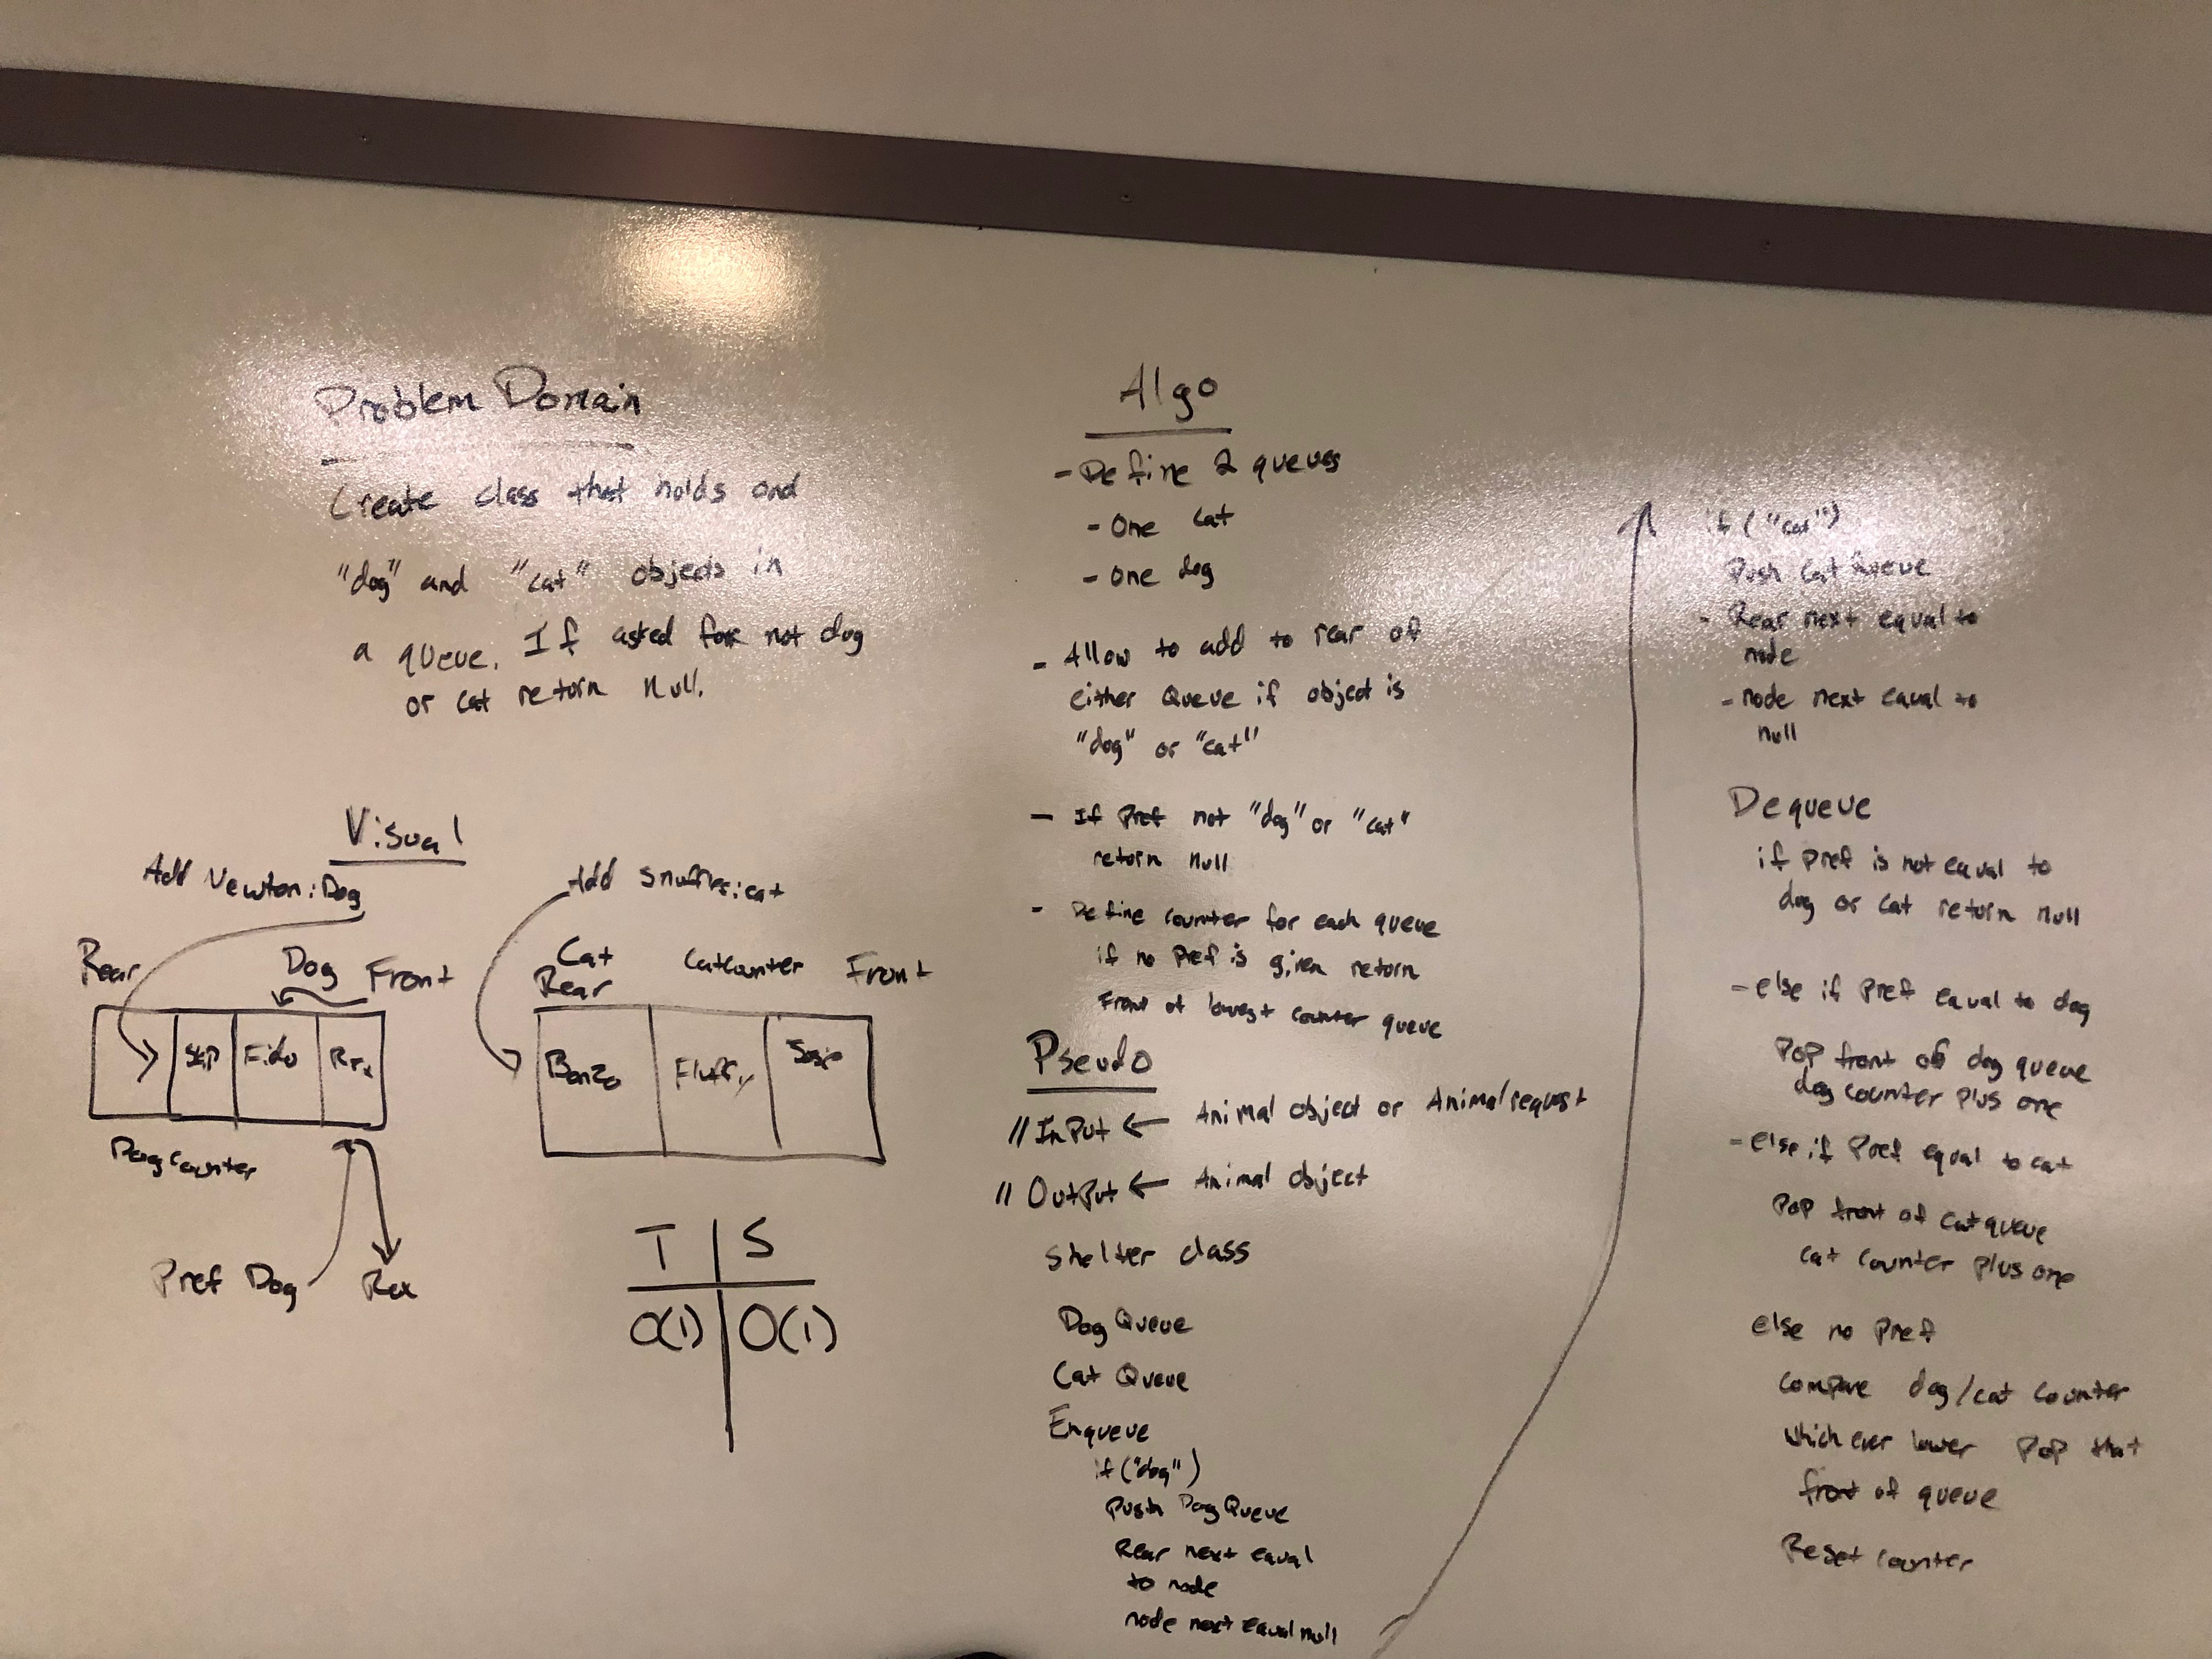 Problem Domain
Create class that holds and
"dog" and "cat" objects in
a queue. If asked for not dog
or cat return null.
Visual
Add Newton: Dog
Rear
Dog
Front
Skip
Fido
Rex
Dog Counter
Pref Dog
Rex
Add Snuffles: cat
Cat
Rear
CatCounter
Front
Bonzo
Fluffy
T | S
O(1) | O(1)
Algo
- Define 2 queues
- One cat
- One dog
- Allow to add to rear of
either Queue if object is
"dog" or "cat"
- If Pref not "dog" or "cat"
return null
- Define counter for each queue
if no pref is given return
Front of lowest counter queue
Pseudo
// InPut ← Animal object or Animal request
// OutPut ← Animal object
Shelter class
Dog Queue
Cat Queue
Enqueue
if ("dog")
Push Dog Queue
Rear next equal
to node
node next equal null
if ("cat")
Push Cat Queue
- Rear next equal to
node
- node next equal to
null
Dequeue
if pref is not equal to
dog or cat return null
- else if Pref equal to dog
Pop front of dog queue
dog counter plus one
- else if Pref equal to cat
Pop front of cat queue
cat counter plus one
else no pref
compare dog/cat counter
which ever lower pop that
front of queue
Reset counter